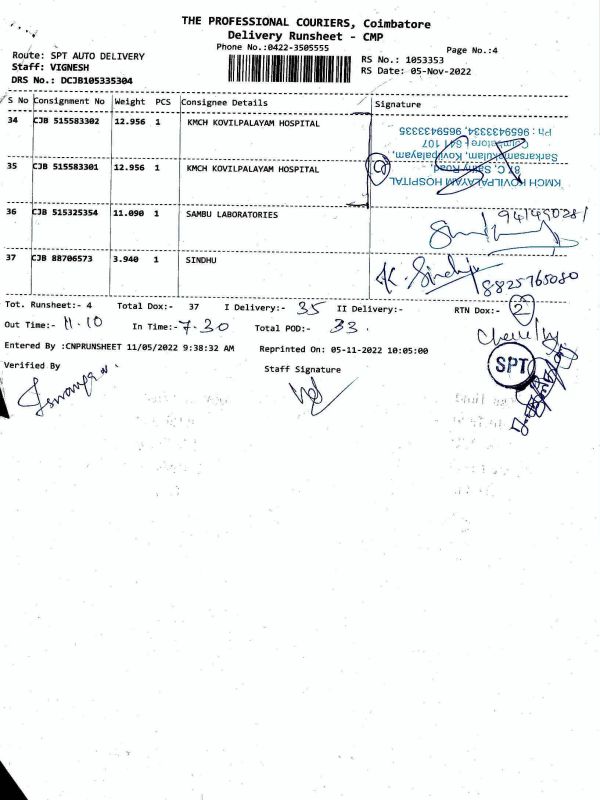 THE PROFESSIONAL COURIERS, Coimbatore
Delivery Runsheet - CMP
Phone No.:0422-3505555
Page No.:4
Route: SPT AUTO DELIVERY
Staff: VIGNESH
DRS No.: DCJB105335304
RS No.: 1053353
RS Date: 05-Nov-2022
S No Consignment No Weight PCS Consignee Details Signature
34 CJB 515583302 12.956 1 KMCH KOVILPALAYAM HOSPITAL
35 CJB 515583301 12.956 1 KMCH KOVILPALAYAM HOSPITAL
KMCH KOVILPALAYAM HOSPITAL
Sarkarsamakulam, Kovilpalayam,
Coimbatore - 641 107
Ph : 9659433334, 9659433335
36 CJB 515325354 11.090 1 SAMBU LABORATORIES
37 CJB 88706573 3.940 1 SINDHU
K. Sindhu
8825765080
Tot. Runsheet:- 4 Total Dox:- 37 I Delivery:- 35 II Delivery:- RTN Dox:- 2
Out Time:- 11.10 In Time:- 7.30 Total POD:- 33.
Entered By :CNPRUNSHEET 11/05/2022 9:38:32 AM Reprinted On: 05-11-2022 10:05:00
Verified By Staff Signature
SPT